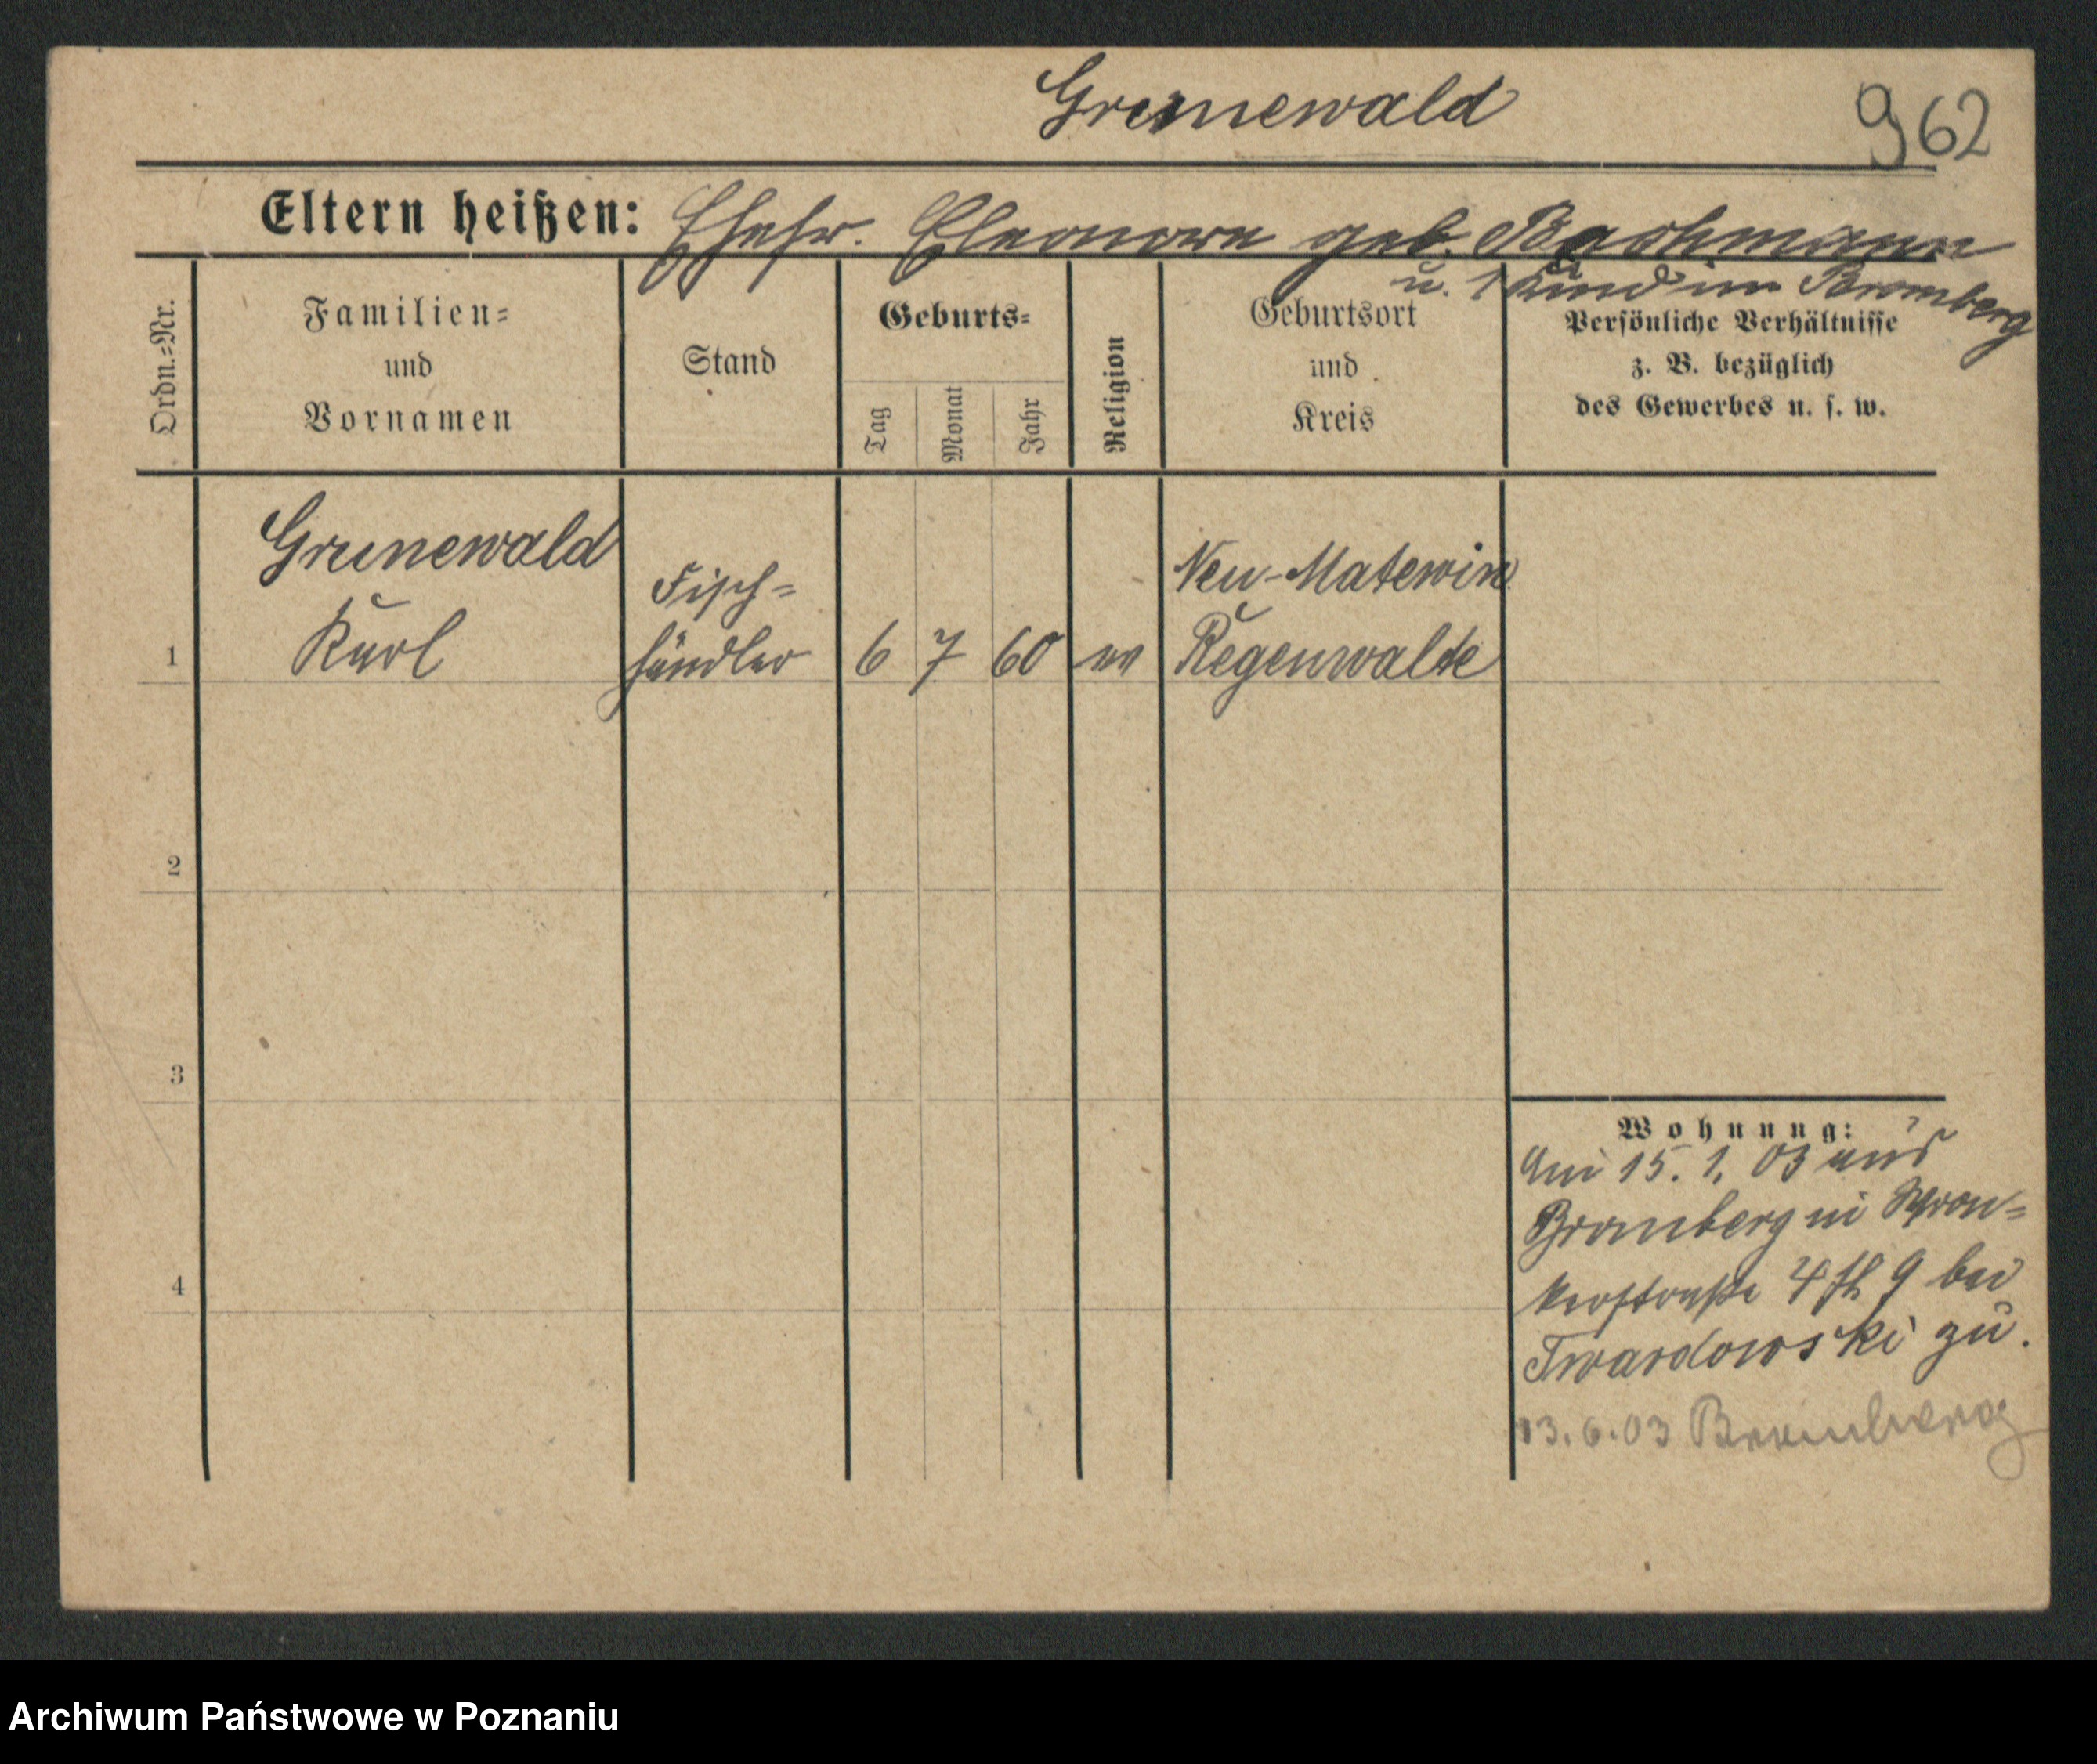 Grunewald
962
Eltern heißen: Ehefr. Eleonore geb. Bachmann
u. 1 Kind in Bromberg
Ordn.=Nr.
Familien=
und
Vornamen
Stand
Geburts=
Tag
Monat
Jahr
Religion
Geburtsort
und
Kreis
Persönliche Verhältnisse
z. B. bezüglich
des Gewerbes u. s. w.
1
Grunewald
Karl
Fisch=
händler
6
7
60
ev
Neu-Matewin
Regenwalde
2
3
4
Wohnung:
Am 15. 1. 03 aus
Bromberg in Wron=
kerstraße 4 9 bei
Twardowski zu.
13.6.03 Bromberg
Archiwum Państwowe w Poznaniu